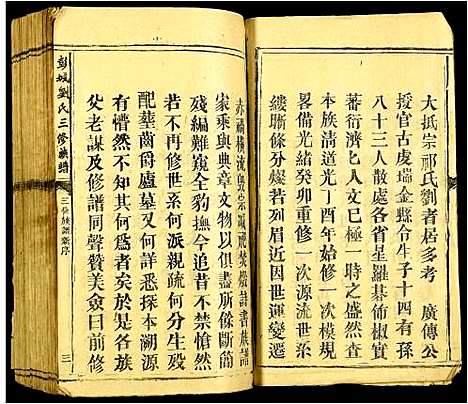 大抵宗祁氏劉者居多考 廣傳公
授官古虔瑞金縣令生子十四有孫
八十三人散處各省星羅碁佈椒實
蕃衍濟匕人文極一時之盛然尚
本族清道光丁酉年始修一次模規
畧備光緒癸卯重修一次源流世系
縷晣條分燦若列眉近因世運變遷
赤禍橫流毀宗滅祀焚燬詩書族譜
家乘與典章文物以俱盡所餘斷簡
殘編難窺全豹撫今追昔不禁愴然
若不再修世系何派親疏何分生殁
配塟齒爵廬墓又何詳悉探本溯源
有懵然不知其何爲者矣於是各族
父老謀及子姓同聲贊美僉曰前修
彭城劉氏三修族譜
三修族譜新序
三